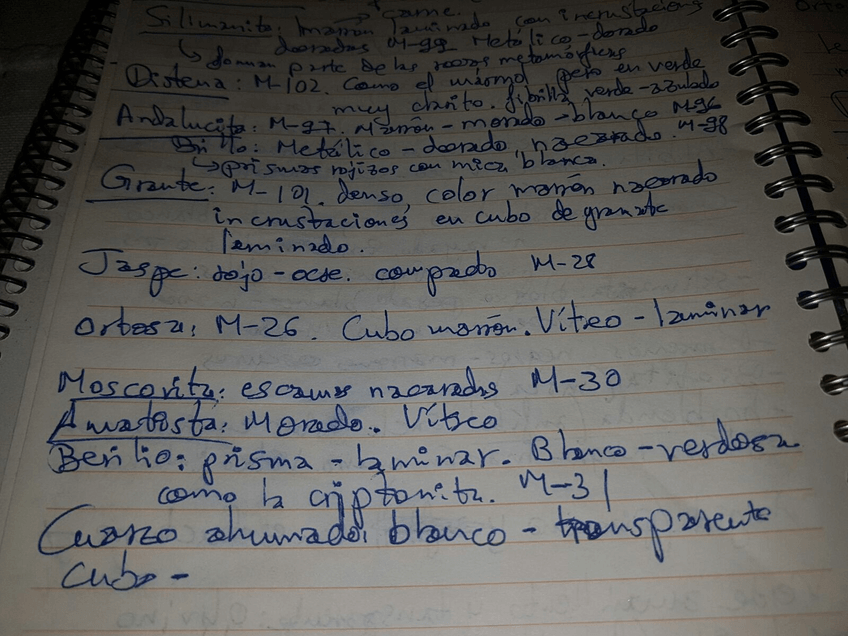 carne.
Silimanita: marrón laminado con incrustaciones
doradas M-99 Metálico-dorado
↳ forman parte de las rocas metamórficas
Distena: M-102. Como el mármol pero en verde
muy clarito. fibrilla verde-azulado
Andalucita: M-97. Marrón-morado-blanco M96
Brillo: Metálico-dorado, nacarado. M-98
↳ prismas rojizos con mica blanca.
Grante: M-101. denso, color marrón nacarado
incrustaciones en cubo de granate
laminado.
Jaspe: rojo-ocre. compacto M-28
Ortosa: M-26. Cubo marrón. Vítreo-laminar
Moscovita: escamas nacaradas M-30
Amatista: Morado. Vítreo
Berilio: prisma-laminar. Blanco-verdosa
como la criptonita. M-31
Cuarzo ahumado: blanco-transparente
Cubo-